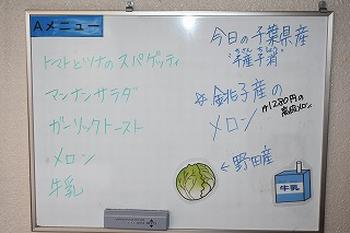 Aメニュー
トマトとツナのスパゲッティ
マンナンサラダ
ガーリックトースト
メロン
牛乳
今日の千葉県産
銚子産の
メロン
1280円の
高級メロン
←野田産
牛乳